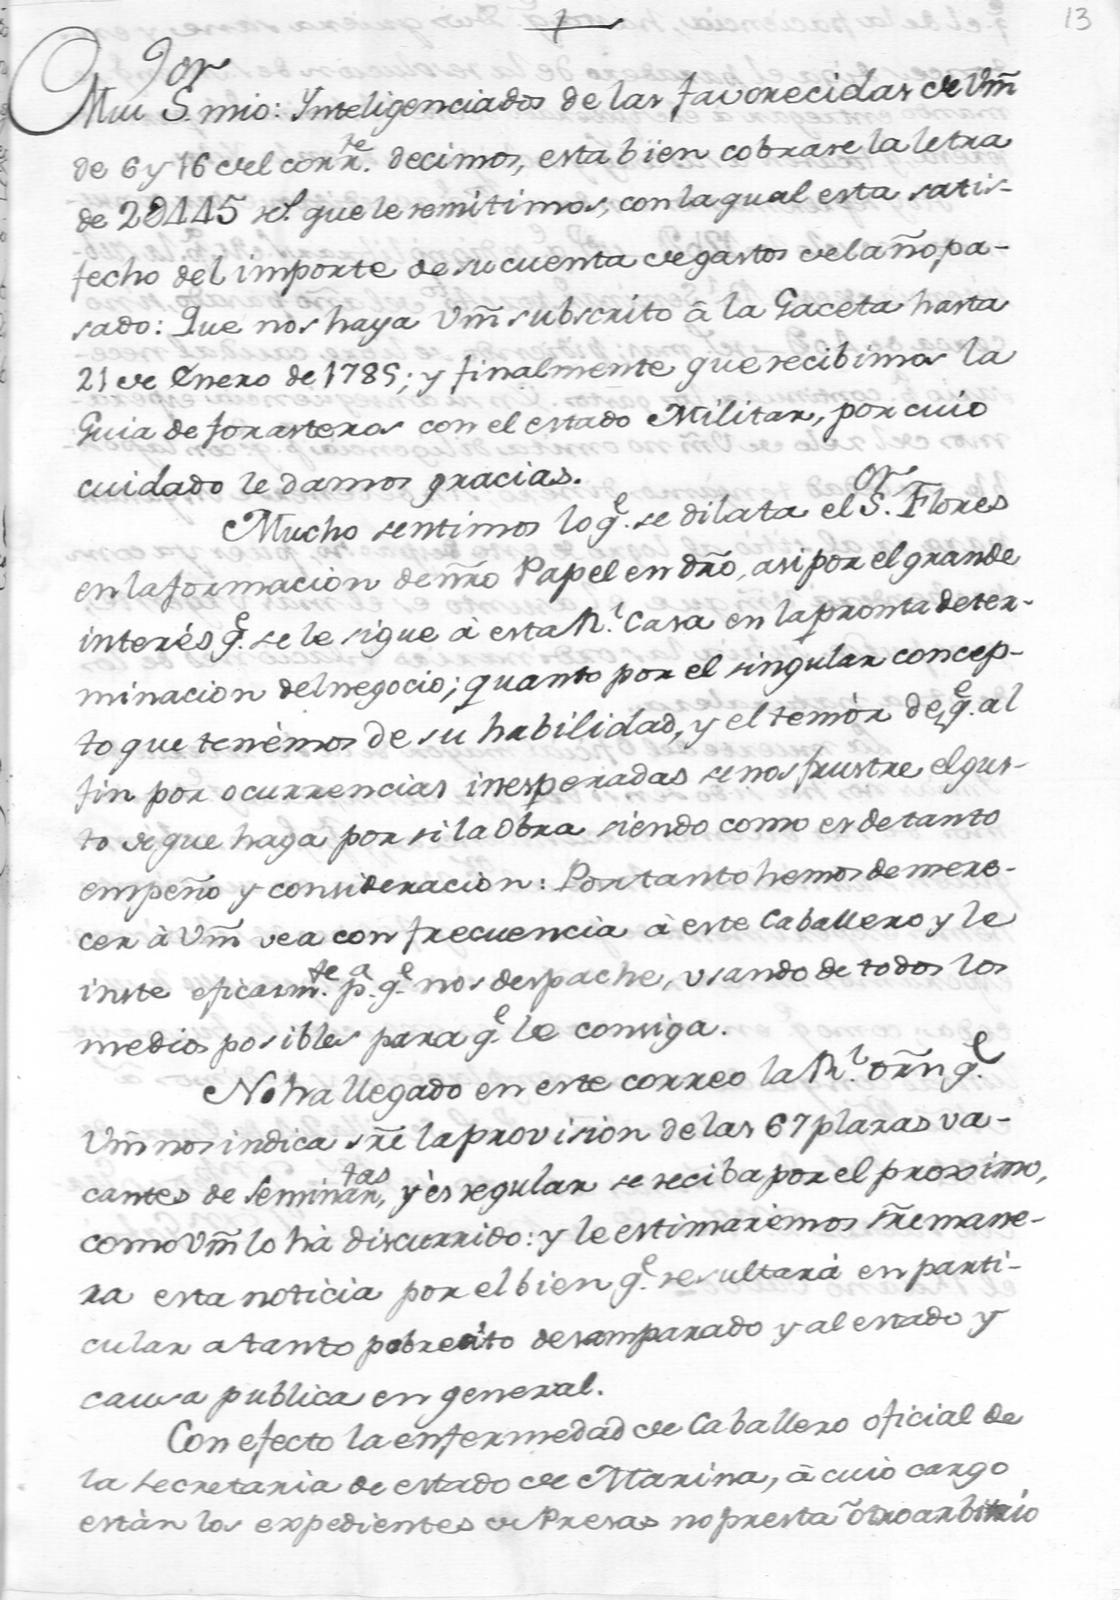 13
Mui S.or mio: Inteligenciados de las favorecidas de Vm̃
de 6 y 16 del corr.te decimos, esta bien cobrase la letra
de 20445 r.l que le remitimos, con la qual esta satis-
fecho del importe de su cuenta de gastos del año pa-
sado: Que nos haya Vm̃ subscrito â la Gaceta hasta
21 de Enero de 1785; y finalmente que recibimos la
Guia de forasteros con el estado Militar, por cuio
cuidado le damos gracias.
Mucho sentimos lo q.e se dilata el S.or Flores
en la formacion de ñro Papel en dr̃o, asi por el grande
interés q.e se le sigue à esta R.l Casa en la pronta deter-
minacion del negocio; quanto por el singular concep-
to que tenémos de su habilidad, y el temór de q.e al
fin por ocurrencias inesperadas se nos frustre el gus-
to de que haga por si la Obra siendo como es de tanto
empeño y consideracion: Por tanto hemos de mere-
cer à Vm̃ vea con frecuencia à este Caballero y le
inste eficazm.te p.a q.e nos despache, usando de todos los
medios posibles para q.e le consiga.
No ha llegado en este correo la R.l orñ q.e
Vm̃ nos indica sr̃e la provision de las 67 plazas va-
cantes de Seminar.tas, y és regular se reciba por el proximo,
como Vm̃ lo hà discurrido: y le estimarémos sr̃e mane-
ra esta noticia por el bien q.e resultarà en parti-
cular a tanto pobrecito desamparado y al estado y
causa publica en general.
Con efecto la enfermedad de Caballero oficial de
la Secretaria de estado de Marina, à cuio cargo
estàn los expedientes de Presas no presta otro arbitrio